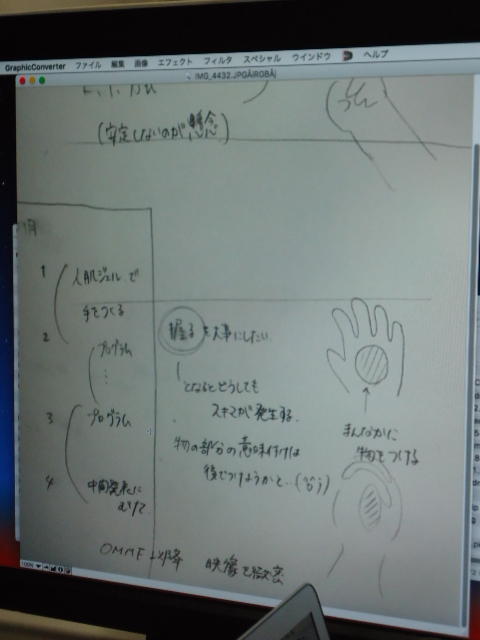 GraphicConverter ファイル 編集 画像 エフェクト フィルタ スペシャル ウインドウ ヘルプ
IMG_4432.JPG
(安定しないのが懸念)
うで
1 人肌ジェルで
手をつくる
2 プログラム
3 プログラム
4 中間発表に
むけて
握る を大事にしたい.
となるとどうしても
スキマが発生する.
物の部分の意味付けは
後でつけようかと..
まんなかに
物をつける
以降 映像で
100%